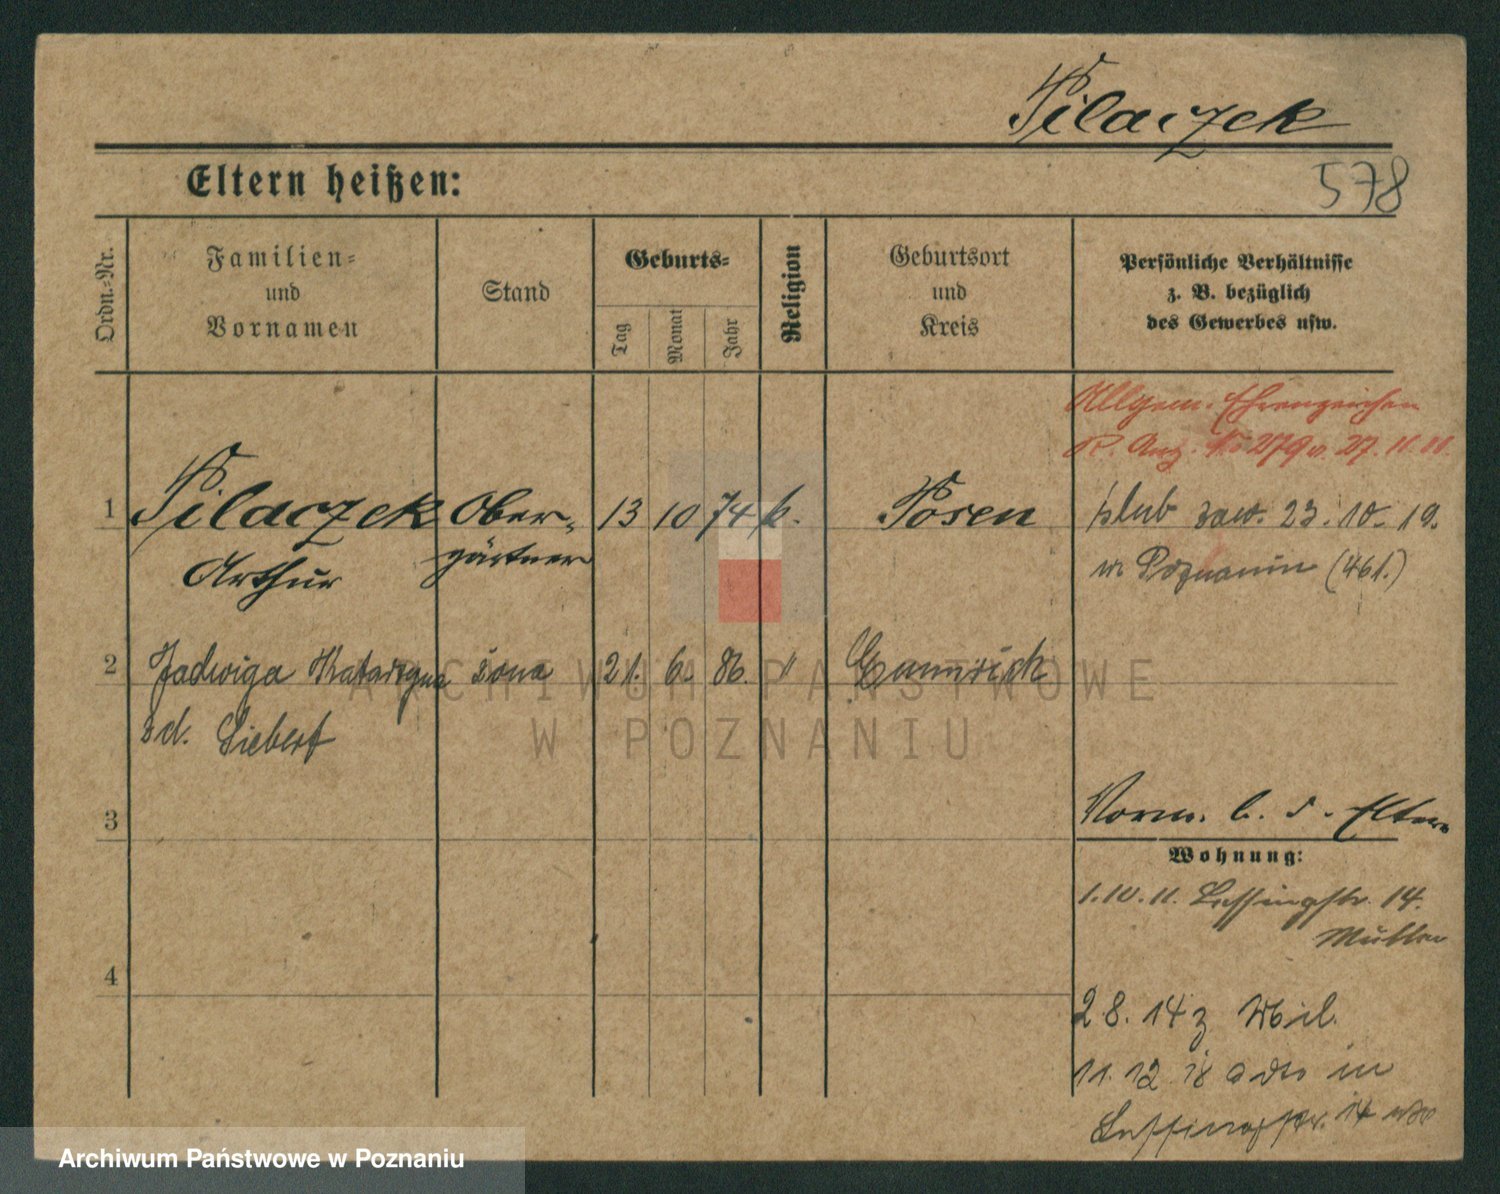 Pilaczek
578
Eltern heißen:
Ordn.-Nr.
Familien-
und
Vornamen
Stand
Geburts-
Tag
Monat
Jahr
Religion
Geburtsort
und
Kreis
Persönliche Verhältnisse
z. B. bezüglich
des Gewerbes usw.
Allgem. Ehrenzeichen
R. Anz. No 279 v. 27. 11. 11.
1 Pilaczek Ober- 13 10 74 k. Posen
Arthur gärtner
ślub zaw. 23. 10. 19.
w Poznaniu (461.)
2 Jadwiga Katarzyna żona 21. 6. 86. "
zd. Siebert
3
Vorm. b. d. Eltern
Wohnung:
1. 10. 11. Lessingstr. 14.
4
2. 8. 14 z Mil.
11. 12 18 in
Lessingstr. 14
ARCHIWUM PAŃSTWOWE
W POZNANIU
Archiwum Państwowe w Poznaniu